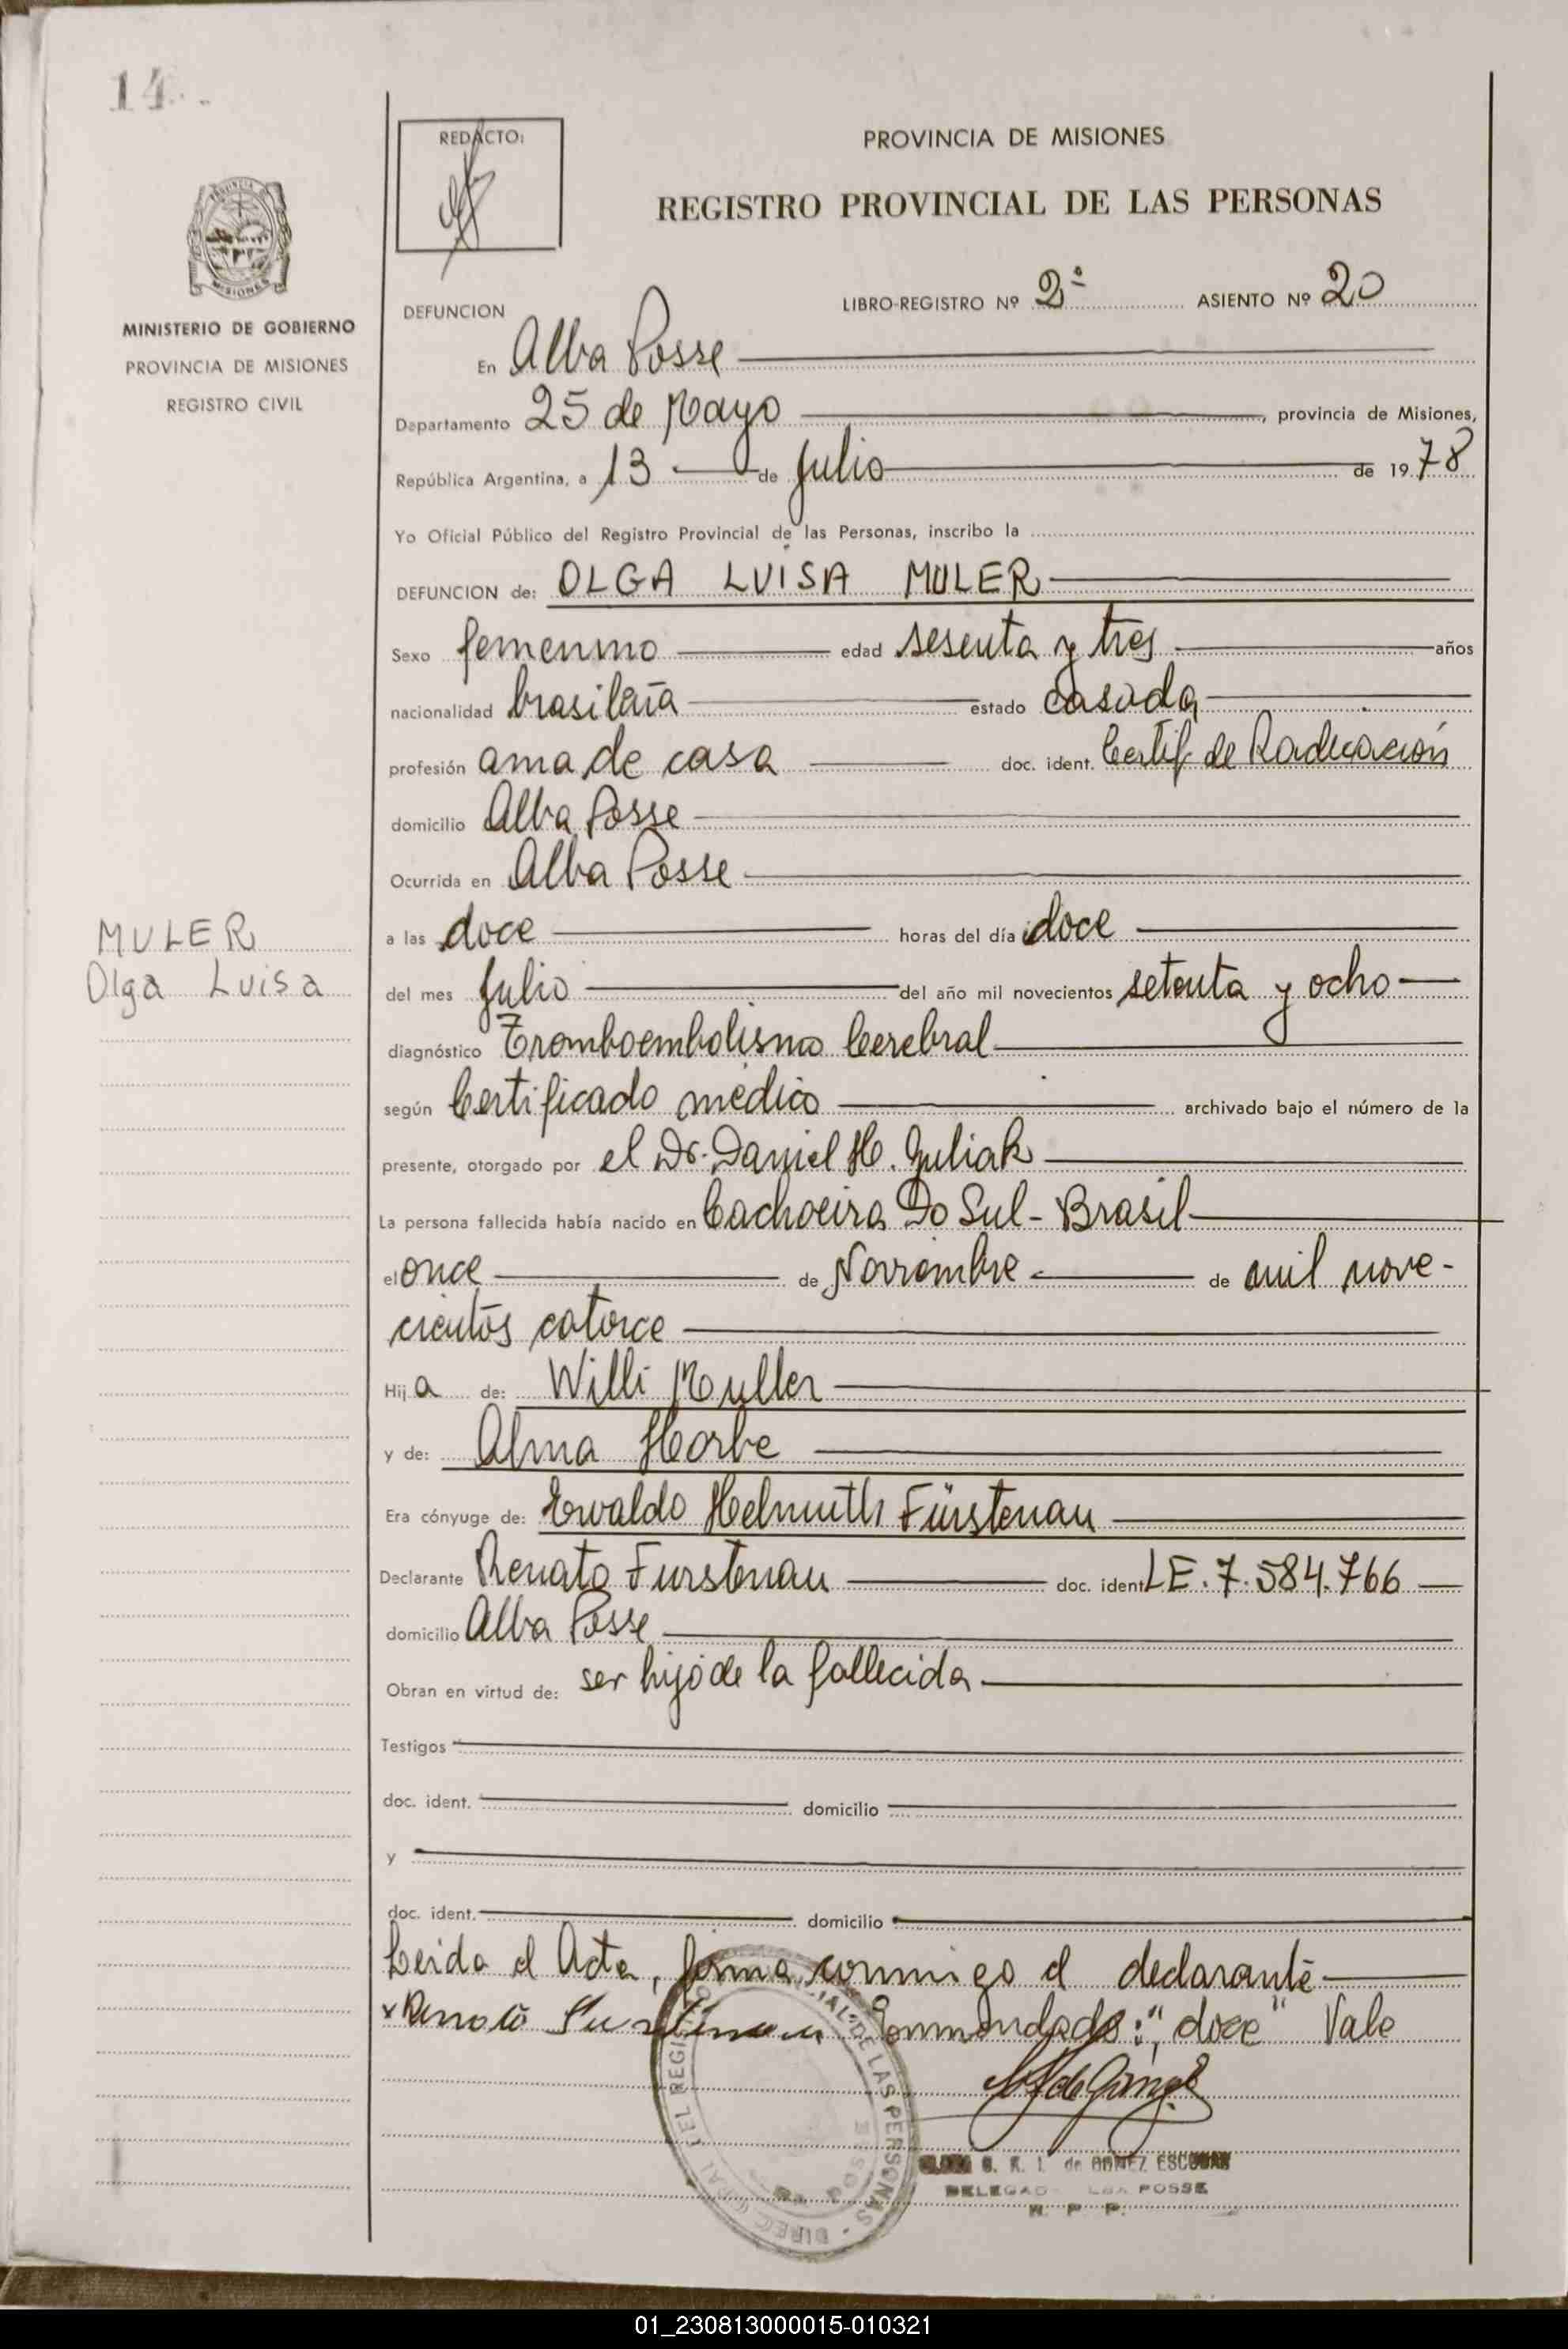 14
REDACTO:
PROVINCIA DE MISIONES
REGISTRO PROVINCIAL DE LAS PERSONAS
MINISTERIO DE GOBIERNO
PROVINCIA DE MISIONES
REGISTRO CIVIL
LIBRO-REGISTRO Nº 2º ASIENTO Nº 20
DEFUNCION
En Alba Posse
Departamento 25 de Mayo, provincia de Misiones,
República Argentina, a 13 de Julio de 19 78
Yo Oficial Público del Registro Provincial de las Personas, inscribo la
DEFUNCION de: OLGA LUISA MULER
Sexo femenino edad sesenta y tres años
nacionalidad brasileña estado casada
profesión ama de casa doc. ident. Certif de Radicación
domicilio Alba Posse
Ocurrida en Alba Posse
MULER
Olga Luisa
a las doce horas del día doce
del mes Julio del año mil novecientos setenta y ocho
diagnóstico Tromboembolismo Cerebral
según Certificado médico archivado bajo el número de la
presente, otorgado por el Dr. Daniel H. Juliak
La persona fallecida había nacido en Cachoeira Do Sul - Brasil
el once de Noviembre de mil nove-
cientos catorce
Hij a de: Willi Muller
y de: Alma Horbe
Era cónyuge de: Ervaldo Helmuth Fürstenau
Declarante Renato Furstenau doc. ident LE. 7.584.766
domicilio Alba Posse
Obran en virtud de: ser hijo de la fallecida
Testigos
doc. ident. domicilio
y
doc. ident. domicilio
Leida el Acta, firma conmigo el declarante
Enmendado: "doce" Vale
DE LAS PERSONAS
de GOMEZ ESCOBAR
POSSE
R. P. P.
01_230813000015-010321